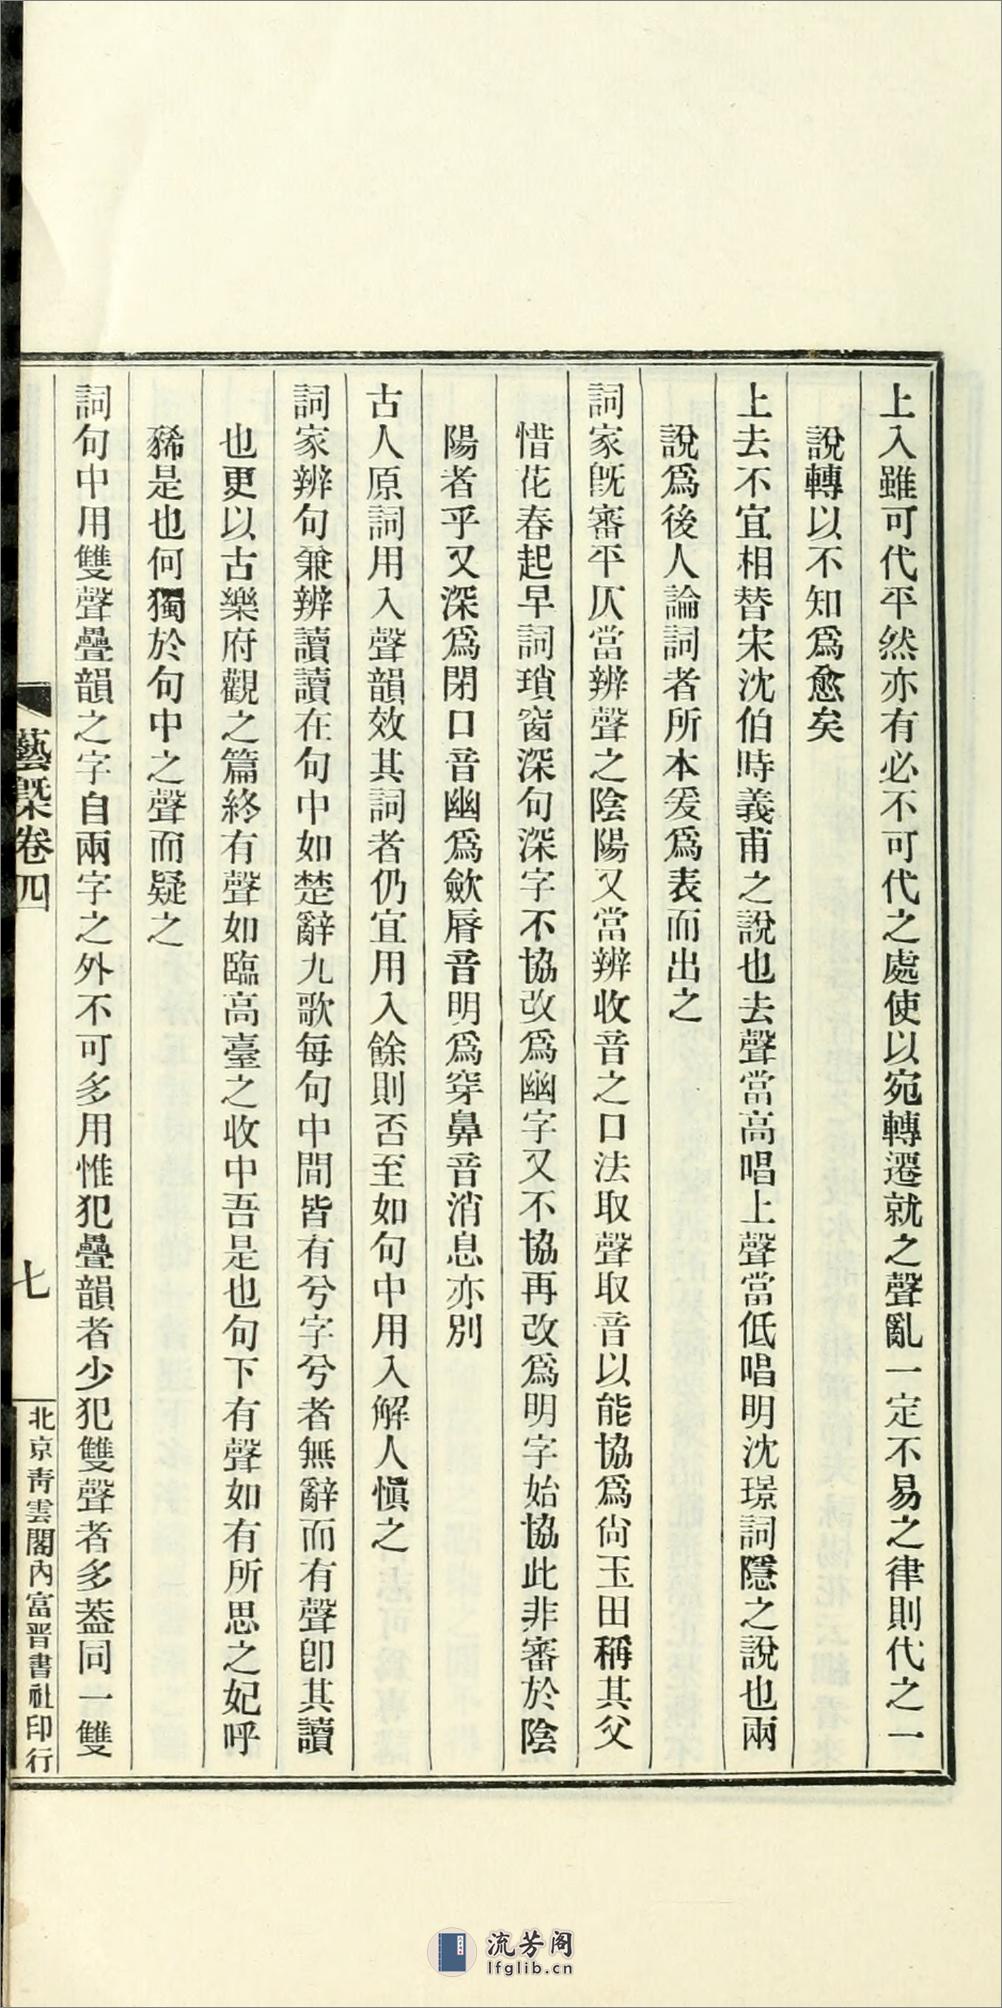 上入雖可代平然亦有必不可代之處使以宛轉遷就之聲亂一定不易之律則代之一
說轉以不知爲愈矣
上去不宜相替宋沈伯時義甫之說也去聲當高唱上聲當低唱明沈璟詞隱之說也兩
說爲後人論詞者所本爰爲表而出之
詞家旣審平仄當辨聲之陰陽又當辨收音之口法取聲取音以能協爲尙玉田稱其父
惜花春起早詞瑣窗深句深字不協改爲幽字又不協再改爲明字始協此非審於陰
陽者乎又深爲閉口音幽爲歛脣音明爲穿鼻音消息亦別
古人原詞用入聲韻效其詞者仍宜用入餘則否至如句中用入解人愼之
詞家辨句兼辨讀讀在句中如楚辭九歌每句中間皆有兮字兮者無辭而有聲卽其讀
也更以古樂府觀之篇終有聲如臨高臺之收中吾是也句下有聲如有所思之妃呼
豨是也何獨於句中之聲而疑之
詞句中用雙聲疊韻之字自兩字之外不可多用惟犯疊韻者少犯雙聲者多蓋同一雙
藝槩卷四
七
北京靑雲閣內富晋書社印行
流芳阁
lfglib.cn